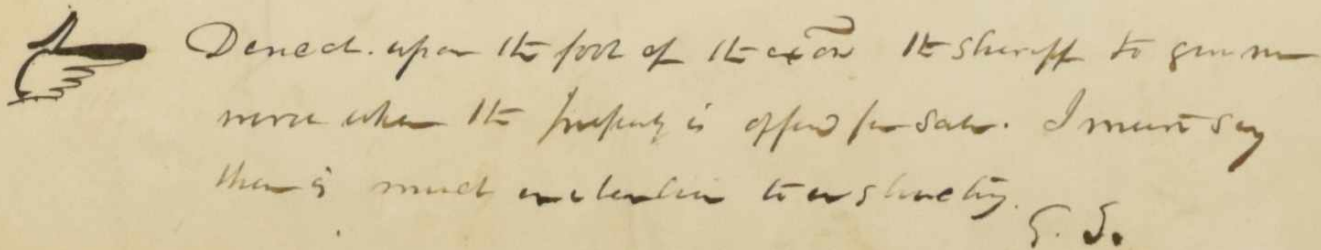 Direct. upon the foot of the exōn the sheriff to give me
when the property is offered for sale. I must say
there is much inattention to instructions.
G. S.